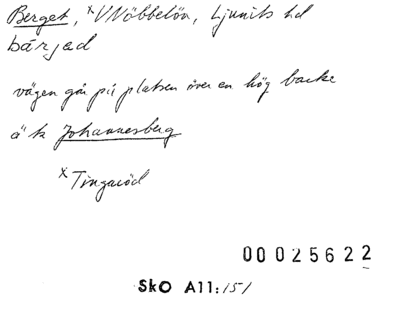 Berget, ×V Nöbbelöv, Ljunits hd
bárjad
vägen går på platsen över en hög backe
äk Johannesberg
× Tingaröd
00025622
SkO A11:151